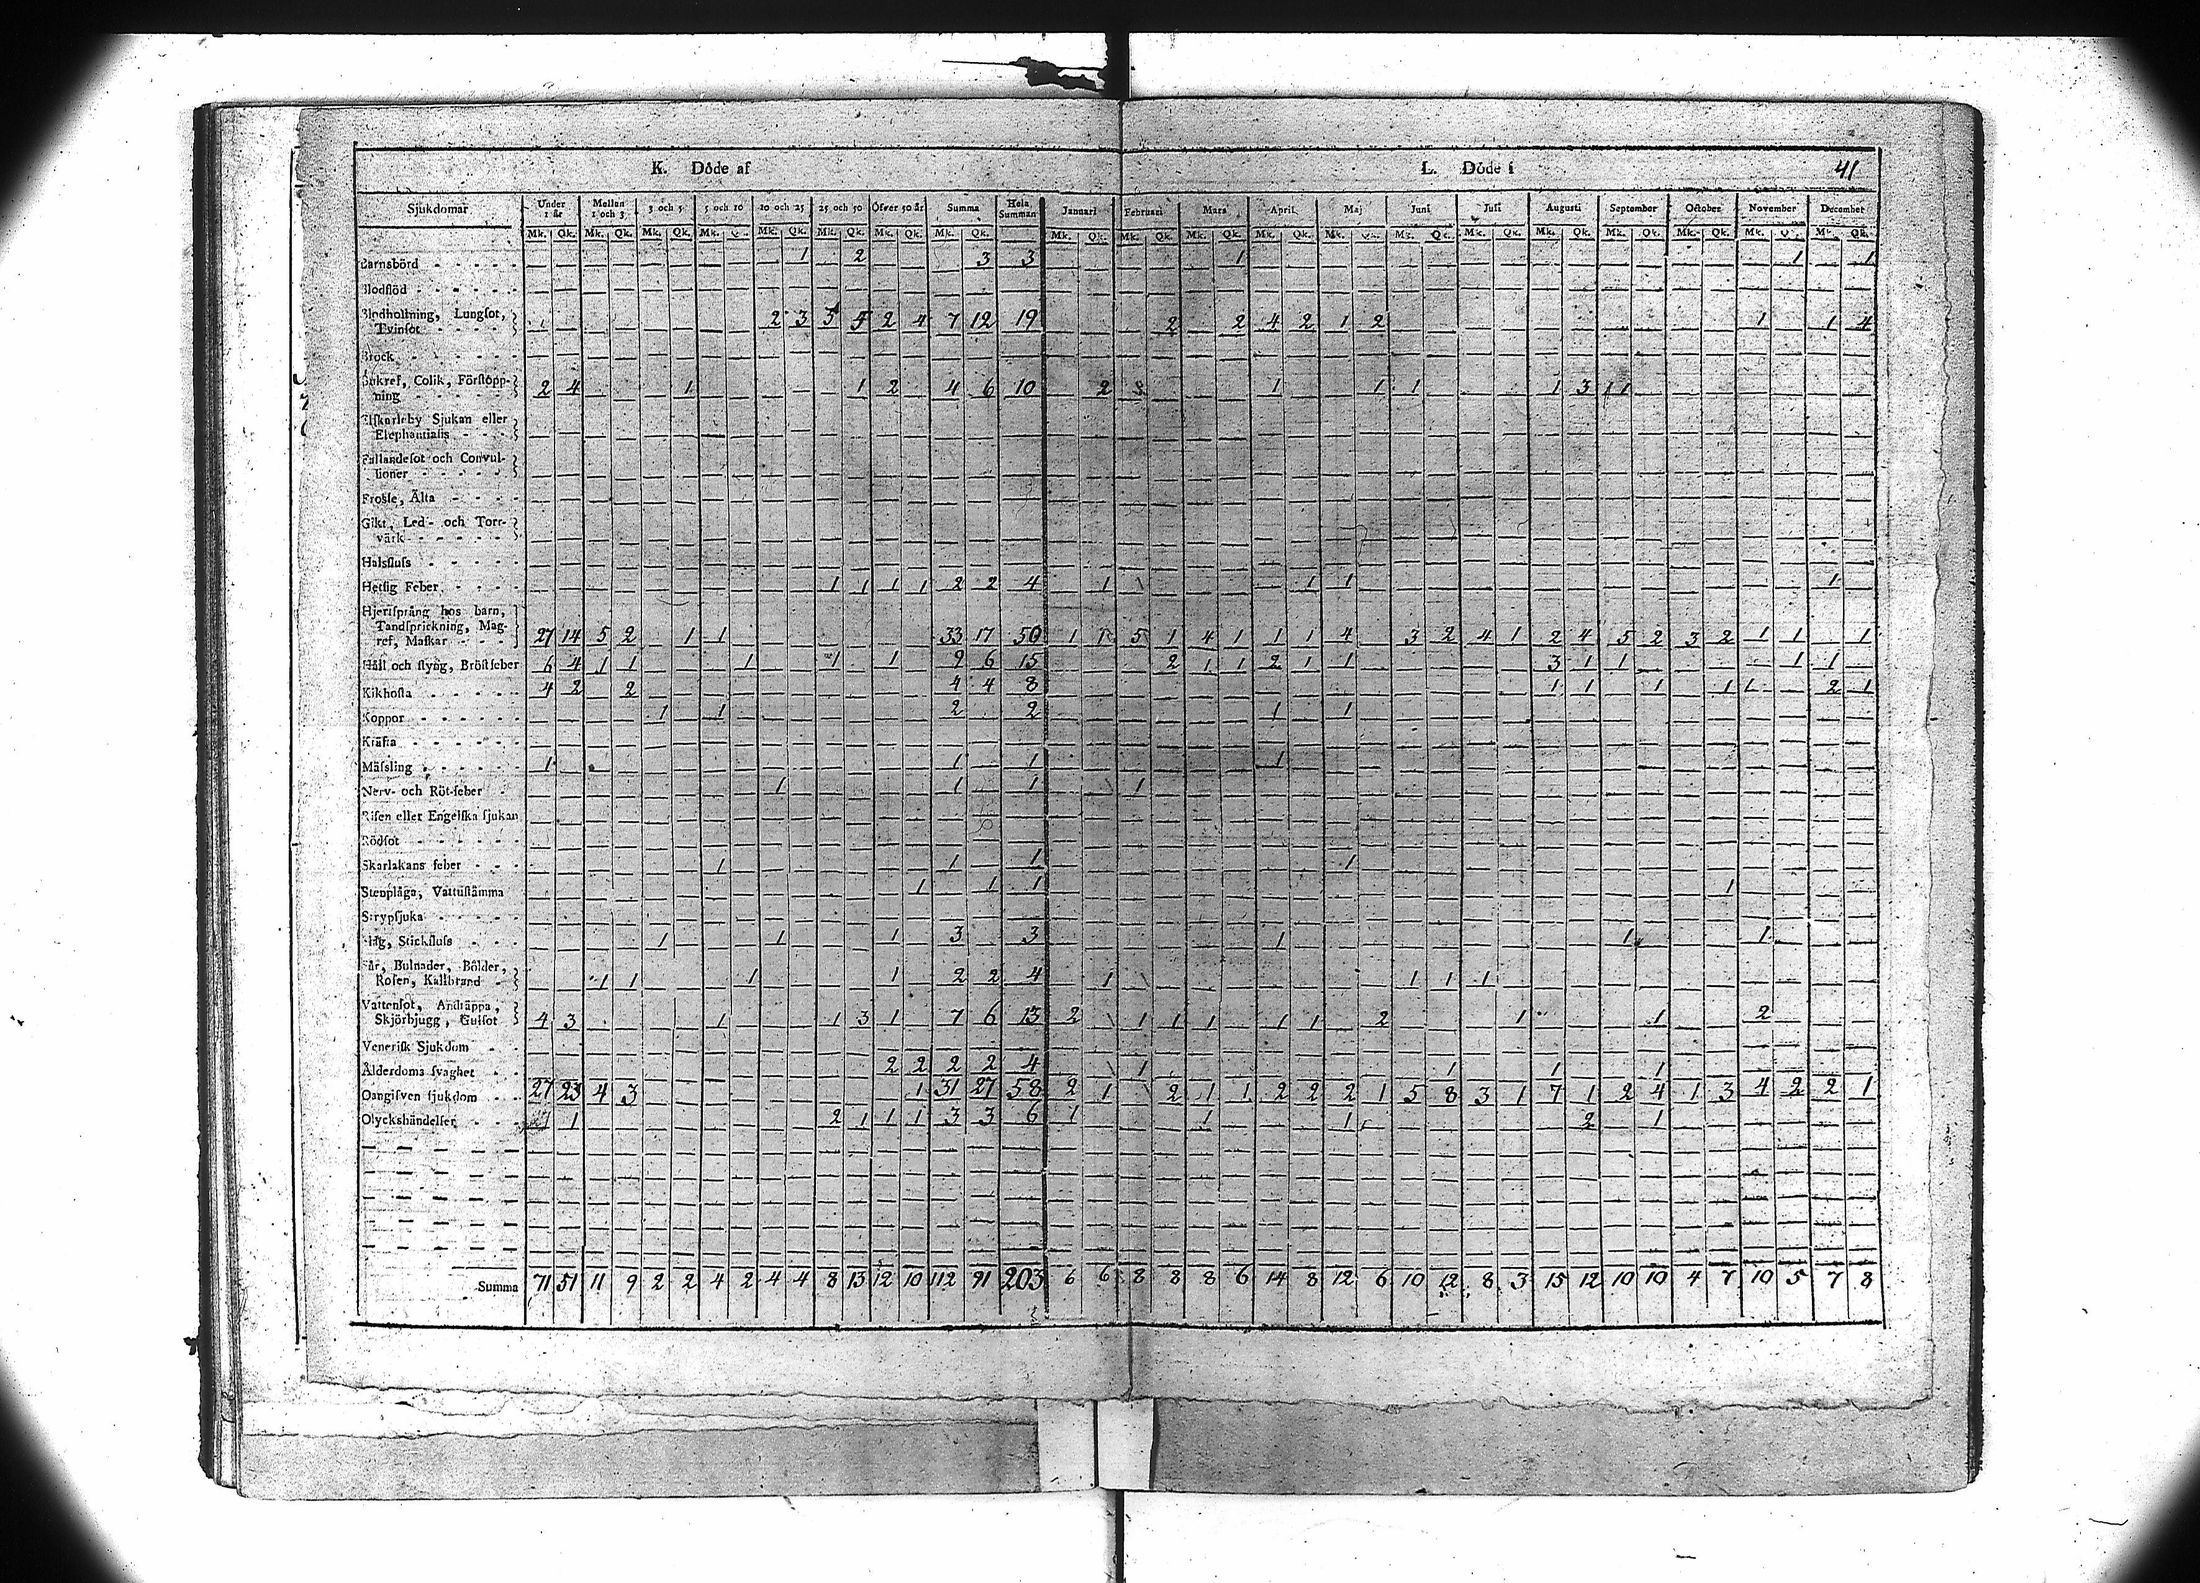 K. Döde af L. Döde i 41
Sjukdomar Under 1 år Mellan 1 och 3 3 och 5 5 och 10 10 och 25 25 och 50 Öfver 50 år Summa Hela Summan Januari Februari Mars April Maj Juni Juli Augusti September October November December
Mk. Qk. Mk. Qk. Mk. Qk. Mk. Q. Mk. Qk. Mk. Qk. Mk. Qk. Mk. Qk. Mk. Qk. Mk. Qk. Mk. Qk. Mk. Qk. Mk. Qk. Mk. Qk. Mk. Qk. Mk. Qk. Mk. Qk. Mk. Qk. Mk. Qk. Mk. Qk.
Barnsbörd - - - - - 1 2 3 3 1 1 1
Blodflöd - - - - - -
Blodhostning, Lungsot,
Tvinsot - - - - - 2 3 5 5 2 4 7 12 19 2 2 4 2 1 2 1 1 4
Brock - - - - -
Bukref, Colik, Förstopp-
ning - - - - - 2 4 1 1 2 4 6 10 2 1 1 1 1 3 1 1
Elfkarleby Sjukan eller
Elephantiasis - - -
Fallandesot och Convul-
sioner - - - - -
Frossa, Älta - - - -
Gikt, Led- och Torr-
värk - - - - - -
Halsfluss - - - - -
Hetsig Feber - - - - 1 1 1 1 2 2 4 1 1 1 1
Hjertsprång hos barn,
Tandsprickning, Mag-
ref, Maskar - - - 27 14 5 2 1 1 33 17 50 1 1 5 1 4 1 1 1 4 3 2 4 1 2 4 5 2 3 2 1 1 1
Håll och styng, Bröstfeber 6 4 1 1 1 1 1 9 6 15 2 1 1 2 1 1 3 1 1 1 1
Kikhosta - - - - - 4 2 2 4 4 8 1 1 1 1 1 2 1
Koppor - - - - - - 1 1 2 2 1 1
Kräfta - - - - - -
Mässling - - - - - - 1 1 1 1
Nerv- och Röt-feber - 1 1 1 1
Risen eller Engelska sjukan
Rödsot - - - - - -
Skarlakans feber - - - 1 1 1 1
Stenplåga, Vattustämma 1 1 1 1
Strypsjuka - - - - -
Slag, Stickfluss - - - 1 1 1 3 3 1 1 1
Sår, Bulnader, Bölder,
Rosen, Kallbrand - 1 1 1 1 2 2 4 1 1 1 1
Vattensot, Andtäppa,
Skjörbjugg, Gulsot 4 3 1 1 3 1 7 6 13 2 1 1 1 1 1 2 1 1 2
Venerisk Sjukdom - -
Ålderdoms svaghet - - 2 2 2 2 4 1 1 1 1
Oangifven sjukdom - - 27 23 4 3 1 31 27 58 2 1 2 1 1 2 2 2 1 5 8 3 1 7 1 2 4 1 3 4 2 2 1
Olyckshändelser - - - 1 2 1 1 1 3 3 6 1 1 1 2 1
Summa 71 51 11 9 2 2 4 2 4 4 8 13 12 10 112 91 203 6 6 8 8 8 6 14 8 12 6 10 12 8 3 15 12 10 10 4 7 10 5 7 8